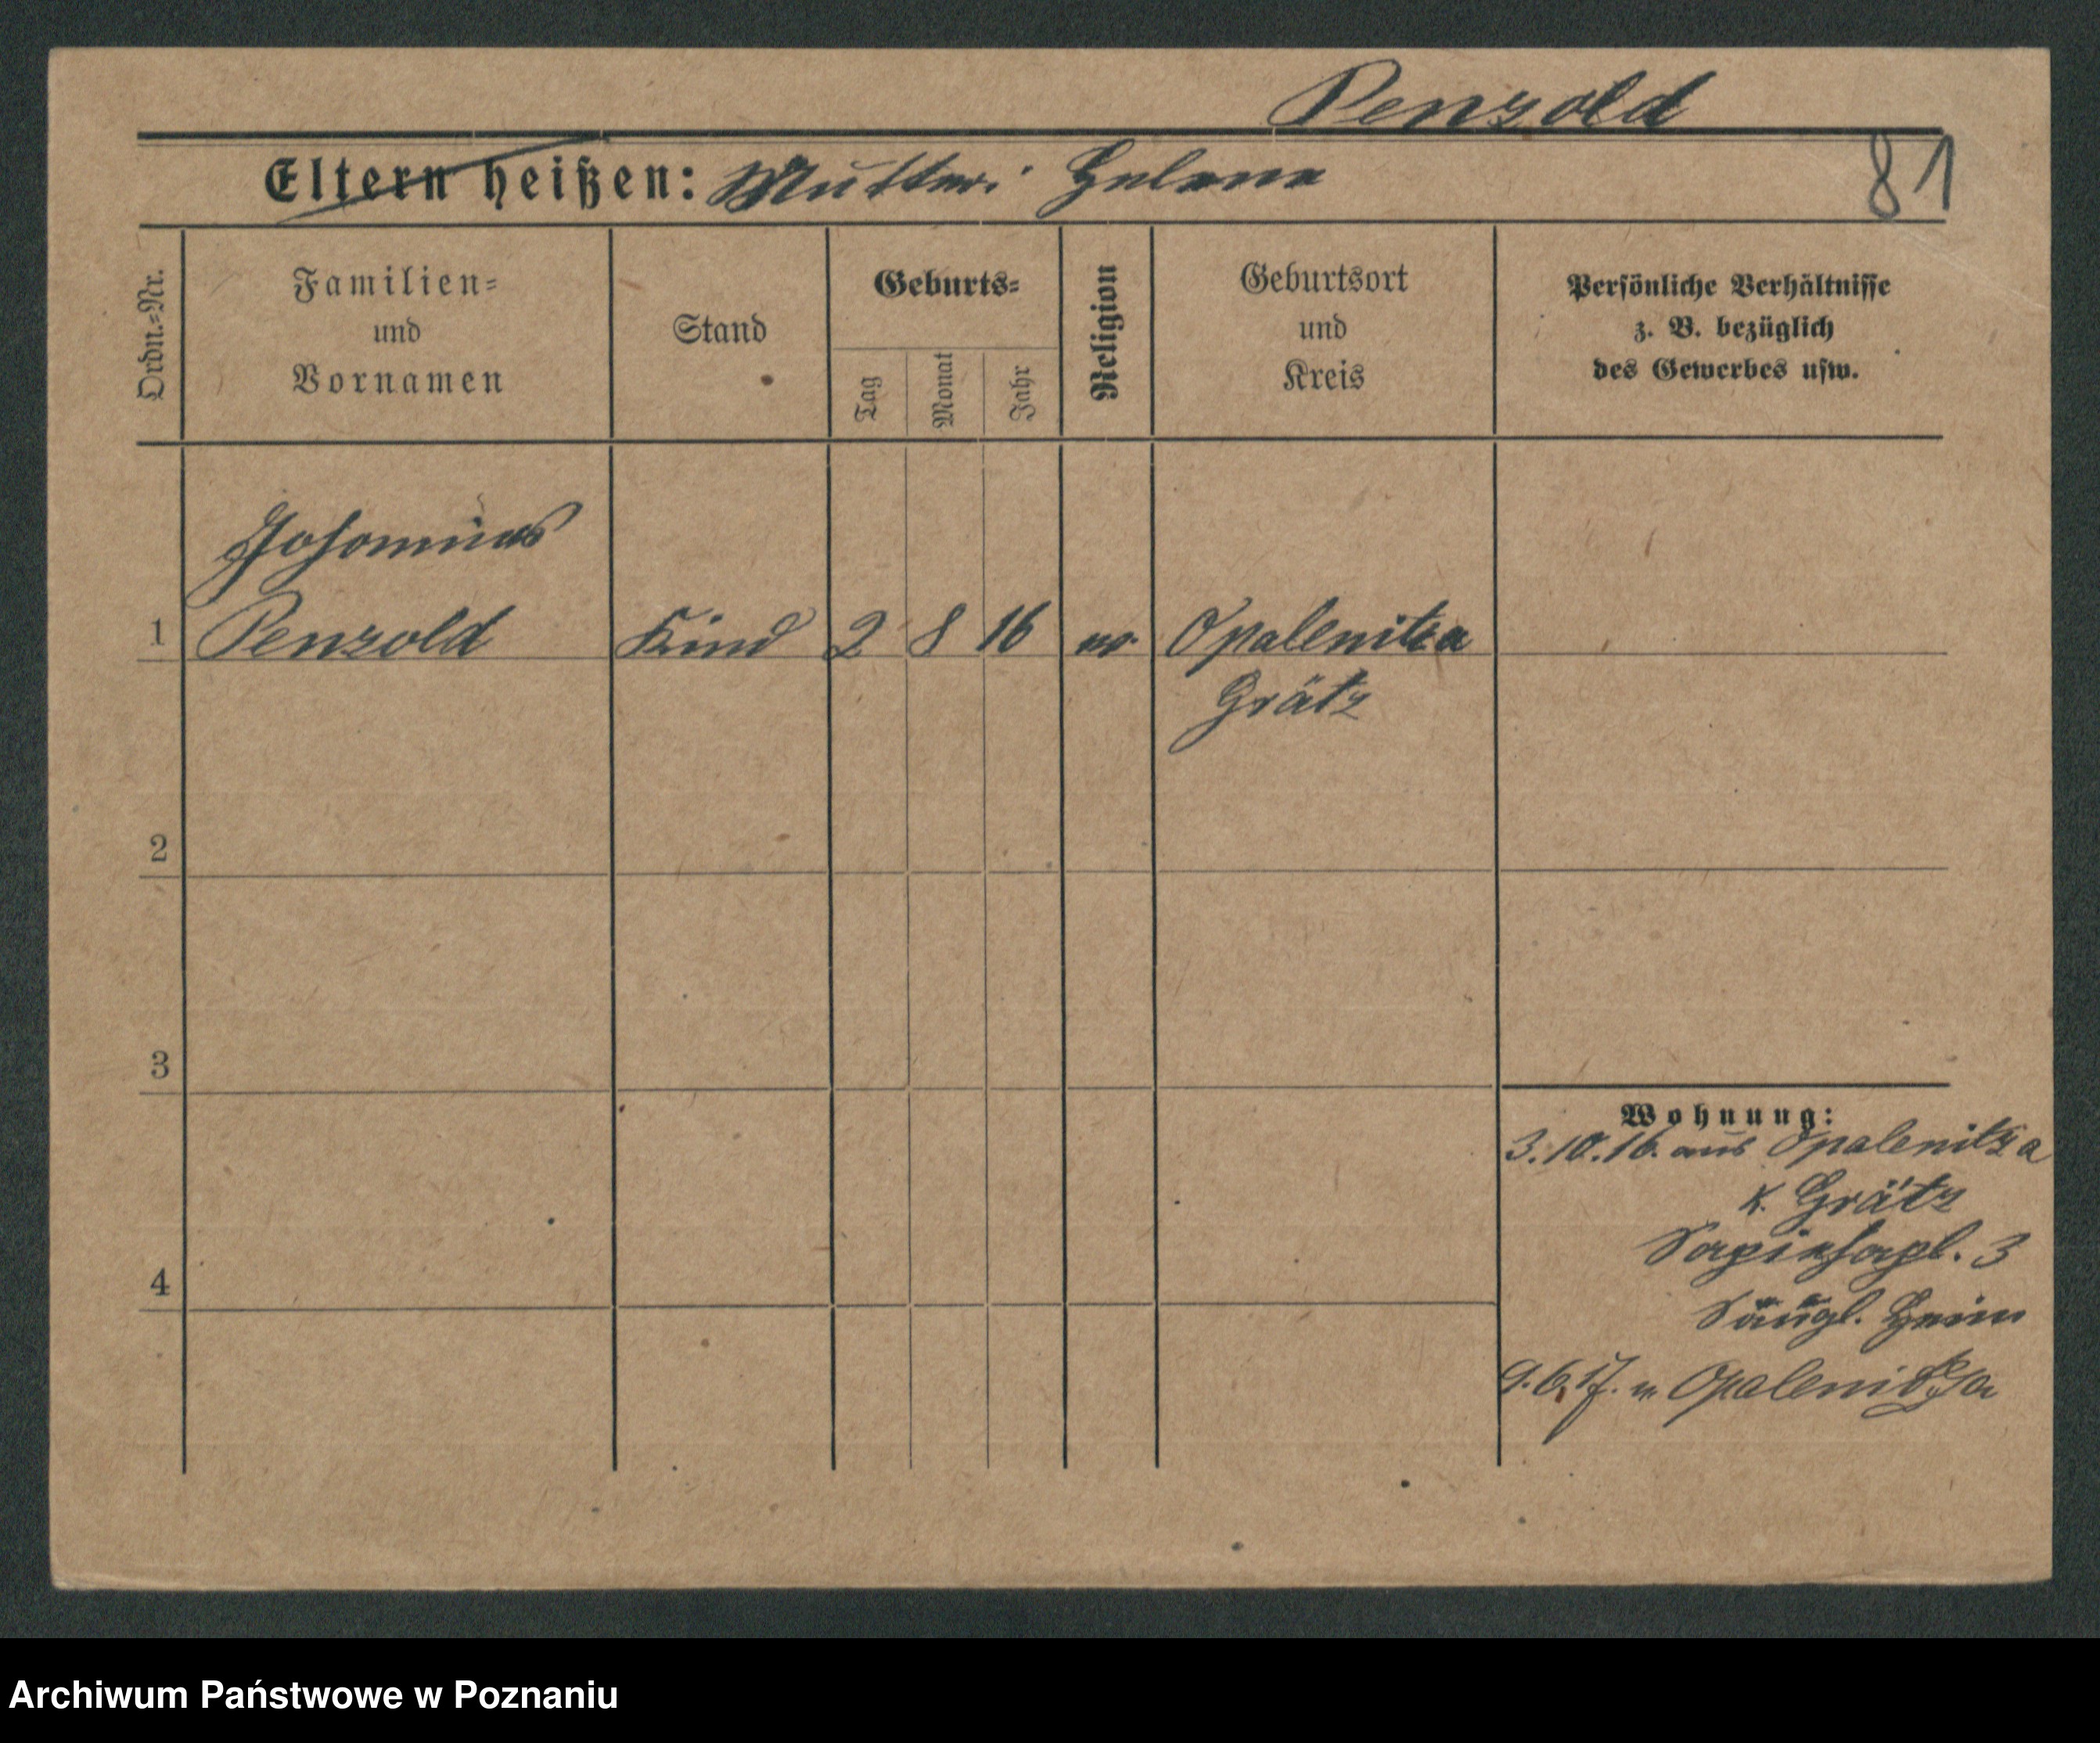 Penzold
Eltern heißen: Mutter: Helene
81
Ordn.-Nr.
Familien- und Vornamen
Stand
Geburts-
Tag
Monat
Jahr
Religion
Geburtsort und Kreis
Persönliche Verhältnisse z. B. bezüglich des Gewerbes usw.
Johannes
1 Penzold Kind 2 8 16 Opalenitza
Grätz
2
3
4
Wohnung:
3.10.16. aus Opalenitza
K. Grätz
Sapiehapl. 3
Säugl. Heim
9.6.17. n. Opalenitza
Archiwum Państwowe w Poznaniu